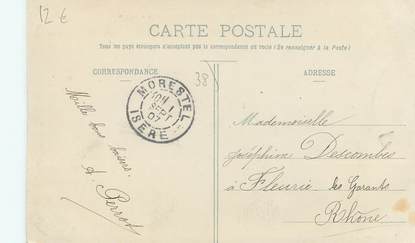 12 €
CARTE POSTALE
Tous les pays étrangers n'acceptent pas la correspondance au recto (Se renseigner à la Poste)
CORRESPONDANCE
38
ADRESSE
MORESTEL
1
SEPT
07
ISERE
Mille bons baisers.
A Perrot
Mademoiselle
Joséphine Descombes
à Fleurie les Garants
Rhône